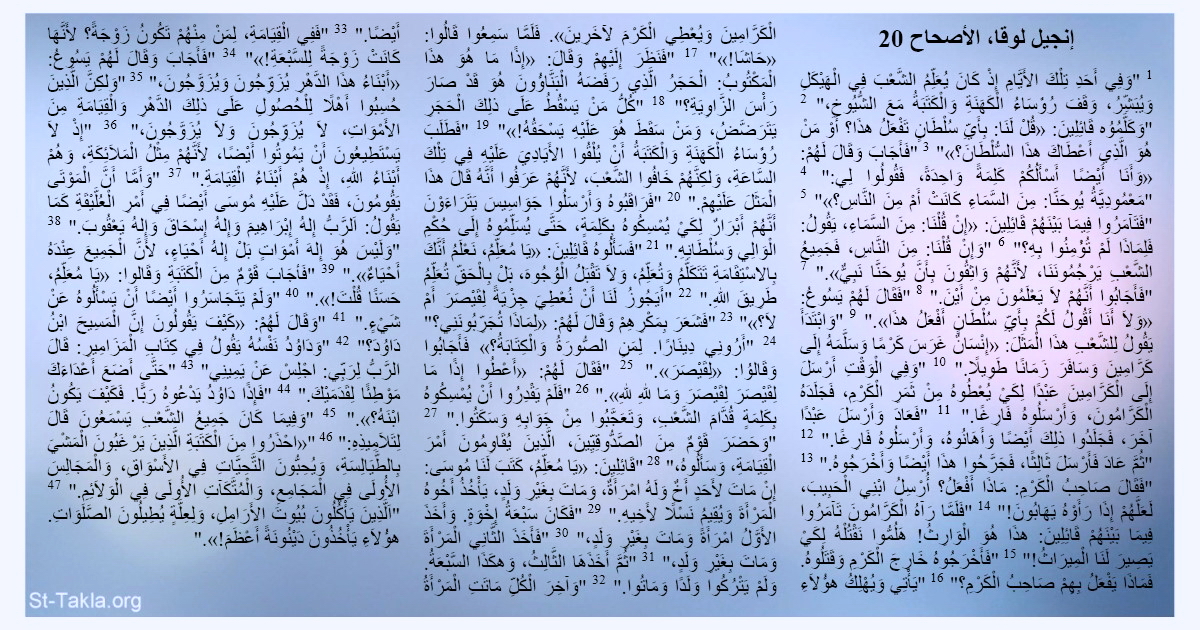 إنجيل لوقا، الأصحاح 20
1 "وَفِي أَحَدِ تِلْكَ الأَيَّامِ إِذْ كَانَ يُعَلِّمُ الشَّعْبَ فِي الْهَيْكَلِ
وَيُبَشِّرُ، وَقَفَ رُؤَسَاءُ الْكَهَنَةِ وَالْكَتَبَةُ مَعَ الشُّيُوخِ،" 2
"وَكَلَّمُوُه قَائِلِينَ: «قُلْ لَنَا: بِأَيِّ سُلْطَانٍ تَفْعَلُ هذَا؟ أَوْ مَنْ
هُوَ الَّذِي أَعْطَاكَ هذَا السُّلْطَانَ؟»" 3 "فَأَجَابَ وَقَالَ لَهُمْ:
«وَأَنَا أَيْضًا أَسْأَلُكُمْ كَلِمَةً وَاحِدَةً، فَقُولُوا لِي:" 4
"مَعْمُودِيَّةُ يُوحَنَّا: مِنَ السَّمَاءِ كَانَتْ أَمْ مِنَ النَّاسِ؟»" 5
"فَتَآمَرُوا فِيمَا بَيْنَهُمْ قَائِلِينَ: «إِنْ قُلْنَا: مِنَ السَّمَاءِ، يَقُولُ:
فَلِمَاذَا لَمْ تُؤْمِنُوا بِهِ؟" 6 "وَإِنْ قُلْنَا: مِنَ النَّاسِ، فَجَمِيعُ
الشَّعْبِ يَرْجُمُونَنَا، لأَنَّهُمْ وَاثِقُونَ بِأَنَّ يُوحَنَّا نَبِيٌّ»." 7
"فَأَجَابُوا أَنَّهُمْ لاَ يَعْلَمُونَ مِنْ أَيْنَ." 8 "فَقَالَ لَهُمْ يَسُوعُ:
«وَلاَ أَنَا أَقُولُ لَكُمْ بِأَيِّ سُلْطَانٍ أَفْعَلُ هذَا»." 9 "وَابْتَدَأَ
يَقُولُ لِلشَّعْبِ هذَا الْمَثَلَ: «إِنْسَانٌ غَرَسَ كَرْمًا وَسَلَّمَهُ إِلَى
كَرَّامِينَ وَسَافَرَ زَمَانًا طَوِيلًا." 10 "وَفِي الْوَقْتِ أَرْسَلَ
إِلَى الْكَرَّامِينَ عَبْدًا لِكَيْ يُعْطُوهُ مِنْ ثَمَرِ الْكَرْمِ، فَجَلَدَهُ
الْكَرَّامُونَ، وَأَرْسَلُوهُ فَارِغًا." 11 "فَعَادَ وَأَرْسَلَ عَبْدًا
آخَرَ، فَجَلَدُوا ذلِكَ أَيْضًا وَأَهَانُوهُ، وَأَرْسَلُوهُ فَارِغًا." 12
"ثُمَّ عَادَ فَأَرْسَلَ ثَالِثًا، فَجَرَّحُوا هذَا أَيْضًا وَأَخْرَجُوهُ." 13
"فَقَالَ صَاحِبُ الْكَرْمِ: مَاذَا أَفْعَلُ؟ أُرْسِلُ ابْنِي الْحَبِيبَ،
لَعَلَّهُمْ إِذَا رَأَوْهُ يَهَابُونَ!" 14 "فَلَمَّا رَآهُ الْكَرَّامُونَ تَآمَرُوا
فِيمَا بَيْنَهُمْ قَائِلِينَ: هذَا هُوَ الْوَارِثُ! هَلُمُّوا نَقْتُلْهُ لِكَيْ
يَصِيرَ لَنَا الْمِيرَاثُ!" 15 "فَأَخْرَجُوهُ خَارِجَ الْكَرْمِ وَقَتَلُوهُ.
فَمَاذَا يَفْعَلُ بِهِمْ صَاحِبُ الْكَرْمِ؟" 16 "يَأْتِي وَيُهْلِكُ هؤُلاَءِ
الْكَرَّامِينَ وَيُعْطِي الْكَرْمَ لآخَرِينَ». فَلَمَّا سَمِعُوا قَالُوا:
«حَاشَا!»" 17 "فَنَظَرَ إِلَيْهِمْ وَقَالَ: «إِذًا مَا هُوَ هذَا
الْمَكْتُوبُ: الْحَجَرُ الَّذِي رَفَضَهُ الْبَنَّاؤُونَ هُوَ قَدْ صَارَ
رَأْسَ الزَّاوِيَةِ؟" 18 "كُلُّ مَنْ يَسْقُطُ عَلَى ذلِكَ الْحَجَرِ
يَتَرَضَّضُ، وَمَنْ سَقَطَ هُوَ عَلَيْهِ يَسْحَقُهُ!»" 19 "فَطَلَبَ
رُؤَسَاءُ الْكَهَنَةِ وَالْكَتَبَةُ أَنْ يُلْقُوا الأَيَادِيَ عَلَيْهِ فِي تِلْكَ
السَّاعَةِ، وَلكِنَّهُمْ خَافُوا الشَّعْبَ، لأَنَّهُمْ عَرَفُوا أَنَّهُ قَالَ هذَا
الْمَثَلَ عَلَيْهِمْ." 20 "فَرَاقَبُوهُ وَأَرْسَلُوا جَوَاسِيسَ يَتَرَاءَوْنَ
أَنَّهُمْ أَبْرَارٌ لِكَيْ يُمْسِكُوهُ بِكَلِمَةٍ، حَتَّى يُسَلِّمُوهُ إِلَى حُكْمِ
الْوَالِي وَسُلْطَانِهِ." 21 "فَسَأَلُوهُ قَائِلِينَ: «يَا مُعَلِّمُ، نَعْلَمُ أَنَّكَ
بِالاسْتِقَامَةِ تَتَكَلَّمُ وَتُعَلِّمُ، وَلاَ تَقْبَلُ الْوُجُوهَ، بَلْ بِالْحَقِّ تُعَلِّمُ
طَرِيقَ اللهِ." 22 "أَيَجُوزُ لَنَا أَنْ نُعْطِيَ جِزْيَةً لِقَيْصَرَ أَمْ
لاَ؟»" 23 "فَشَعَرَ بِمَكْرِهِمْ وَقَالَ لَهُمْ: «لِمَاذَا تُجَرِّبُونَنِي؟"
24 "أَرُونِي دِينَارًا. لِمَنِ الصُّورَةُ وَالْكِتَابَةُ؟» فَأَجَابُوا
وَقَالُوا: «لِقَيْصَرَ»." 25 "فَقَالَ لَهُمْ: «أَعْطُوا إِذًا مَا
لِقَيْصَرَ لِقَيْصَرَ وَمَا للهِ للهِ»." 26 "فَلَمْ يَقْدِرُوا أَنْ يُمْسِكُوهُ
بِكَلِمَةٍ قُدَّامَ الشَّعْبِ، وَتَعَجَّبُوا مِنْ جَوَابِهِ وَسَكَتُوا." 27
"وَحَضَرَ قَوْمٌ مِنَ الصَّدُّوقِيِّينَ، الَّذِينَ يُقَاوِمُونَ أَمْرَ
الْقِيَامَةِ، وَسَأَلُوهُ،" 28 "قَائِلِينَ: «يَا مُعَلِّمُ، كَتَبَ لَنَا مُوسَى:
إِنْ مَاتَ لأَحَدٍ أَخٌ وَلَهُ امْرَأَةٌ، وَمَاتَ بِغَيْرِ وَلَدٍ، يَأْخُذُ أَخُوهُ
الْمَرْأَةَ وَيُقِيمُ نَسْلًا لأَخِيهِ." 29 "فَكَانَ سَبْعَةُ إِخْوَةٍ. وَأَخَذَ
الأَوَّلُ امْرَأَةً وَمَاتَ بِغَيْرِ وَلَدٍ،" 30 "فَأَخَذَ الثَّانِي الْمَرْأَةَ
وَمَاتَ بِغَيْرِ وَلَدٍ،" 31 "ثُمَّ أَخَذَهَا الثَّالِثُ، وَهكَذَا السَّبْعَةُ.
وَلَمْ يَتْرُكُوا وَلَدًا وَمَاتُوا." 32 "وَآخِرَ الْكُلِّ مَاتَتِ الْمَرْأَةُ
أَيْضًا." 33 "فَفِي الْقِيَامَةِ، لِمَنْ مِنْهُمْ تَكُونُ زَوْجَةً؟ لأَنَّهَا
كَانَتْ زَوْجَةً لِلسَّبْعَةِ!»" 34 "فَأَجَابَ وَقَالَ لَهُمْ يَسُوعُ:
«أَبْنَاءُ هذَا الدَّهْرِ يُزَوِّجُونَ وَيُزَوَّجُونَ،" 35 "وَلكِنَّ الَّذِينَ
حُسِبُوا أَهْلًا لِلْحُصُولِ عَلَى ذلِكَ الدَّهْرِ وَالْقِيَامَةِ مِنَ
الأَمْوَاتِ، لاَ يُزَوِّجُونَ وَلاَ يُزَوَّجُونَ،" 36 "إِذْ لاَ
يَسْتَطِيعُونَ أَنْ يَمُوتُوا أَيْضًا، لأَنَّهُمْ مِثْلُ الْمَلاَئِكَةِ، وَهُمْ
أَبْنَاءُ اللهِ، إِذْ هُمْ أَبْنَاءُ الْقِيَامَةِ." 37 "وَأَمَّا أَنَّ الْمَوْتَى
يَقُومُونَ، فَقَدْ دَلَّ عَلَيْهِ مُوسَى أَيْضًا فِي أَمْرِ الْعُلَّيْقَةِ كَمَا
يَقُولُ: اَلرَّبُّ إِلهُ إِبْرَاهِيمَ وَإِلهُ إِسْحَاقَ وَإِلهُ يَعْقُوبَ." 38
"وَلَيْسَ هُوَ إِلهَ أَمْوَاتٍ بَلْ إِلهُ أَحْيَاءٍ، لأَنَّ الْجَمِيعَ عِنْدَهُ
أَحْيَاءٌ»." 39 "فَأجَابَ قَوْمٌ مِنَ الْكَتَبَةِ وَقَالوا: «يَا مُعَلِّمُ،
حَسَنًا قُلْتَ!»." 40 "وَلَمْ يَتَجَاسَرُوا أَيْضًا أَنْ يَسْأَلُوهُ عَنْ
شَيْءٍ." 41 "وَقَالَ لَهُمْ: «كَيْفَ يَقُولُونَ إِنَّ الْمَسِيحَ ابْنُ
دَاوُدَ؟" 42 "وَدَاوُدُ نَفْسُهُ يَقُولُ فِي كِتَابِ الْمَزَامِيرِ: قَالَ
الرَّبُّ لِرَبِّي: اجْلِسْ عَنْ يَمِينِي" 43 "حَتَّى أَضَعَ أَعْدَاءَكَ
مَوْطِئًا لِقَدَمَيْكَ." 44 "فَإِذًا دَاوُدُ يَدْعُوهُ رَبًّا. فَكَيْفَ يَكُونُ
ابْنَهُ؟»." 45 "وَفِيمَا كَانَ جَمِيعُ الشَّعْبِ يَسْمَعُونَ قَالَ
لِتَلاَمِيذِهِ:" 46 "«احْذَرُوا مِنَ الْكَتَبَةِ الَّذِينَ يَرْغَبُونَ الْمَشْيَ
بِالطَّيَالِسَةِ، وَيُحِبُّونَ التَّحِيَّاتِ فِي الأَسْوَاقِ، وَالْمَجَالِسَ
الأُولَى فِي الْمَجَامِعِ، وَالْمُتَّكَآتِ الأُولَى فِي الْوَلاَئِمِ." 47
"اَلَّذِينَ يَأْكُلُونَ بُيُوتَ الأَرَامِلِ، وَلِعِلَّةٍ يُطِيلُونَ الصَّلَوَاتِ.
هؤُلاَءِ يَأْخُذُونَ دَيْنُونَةً أَعْظَمَ!»."
St-Takla.org